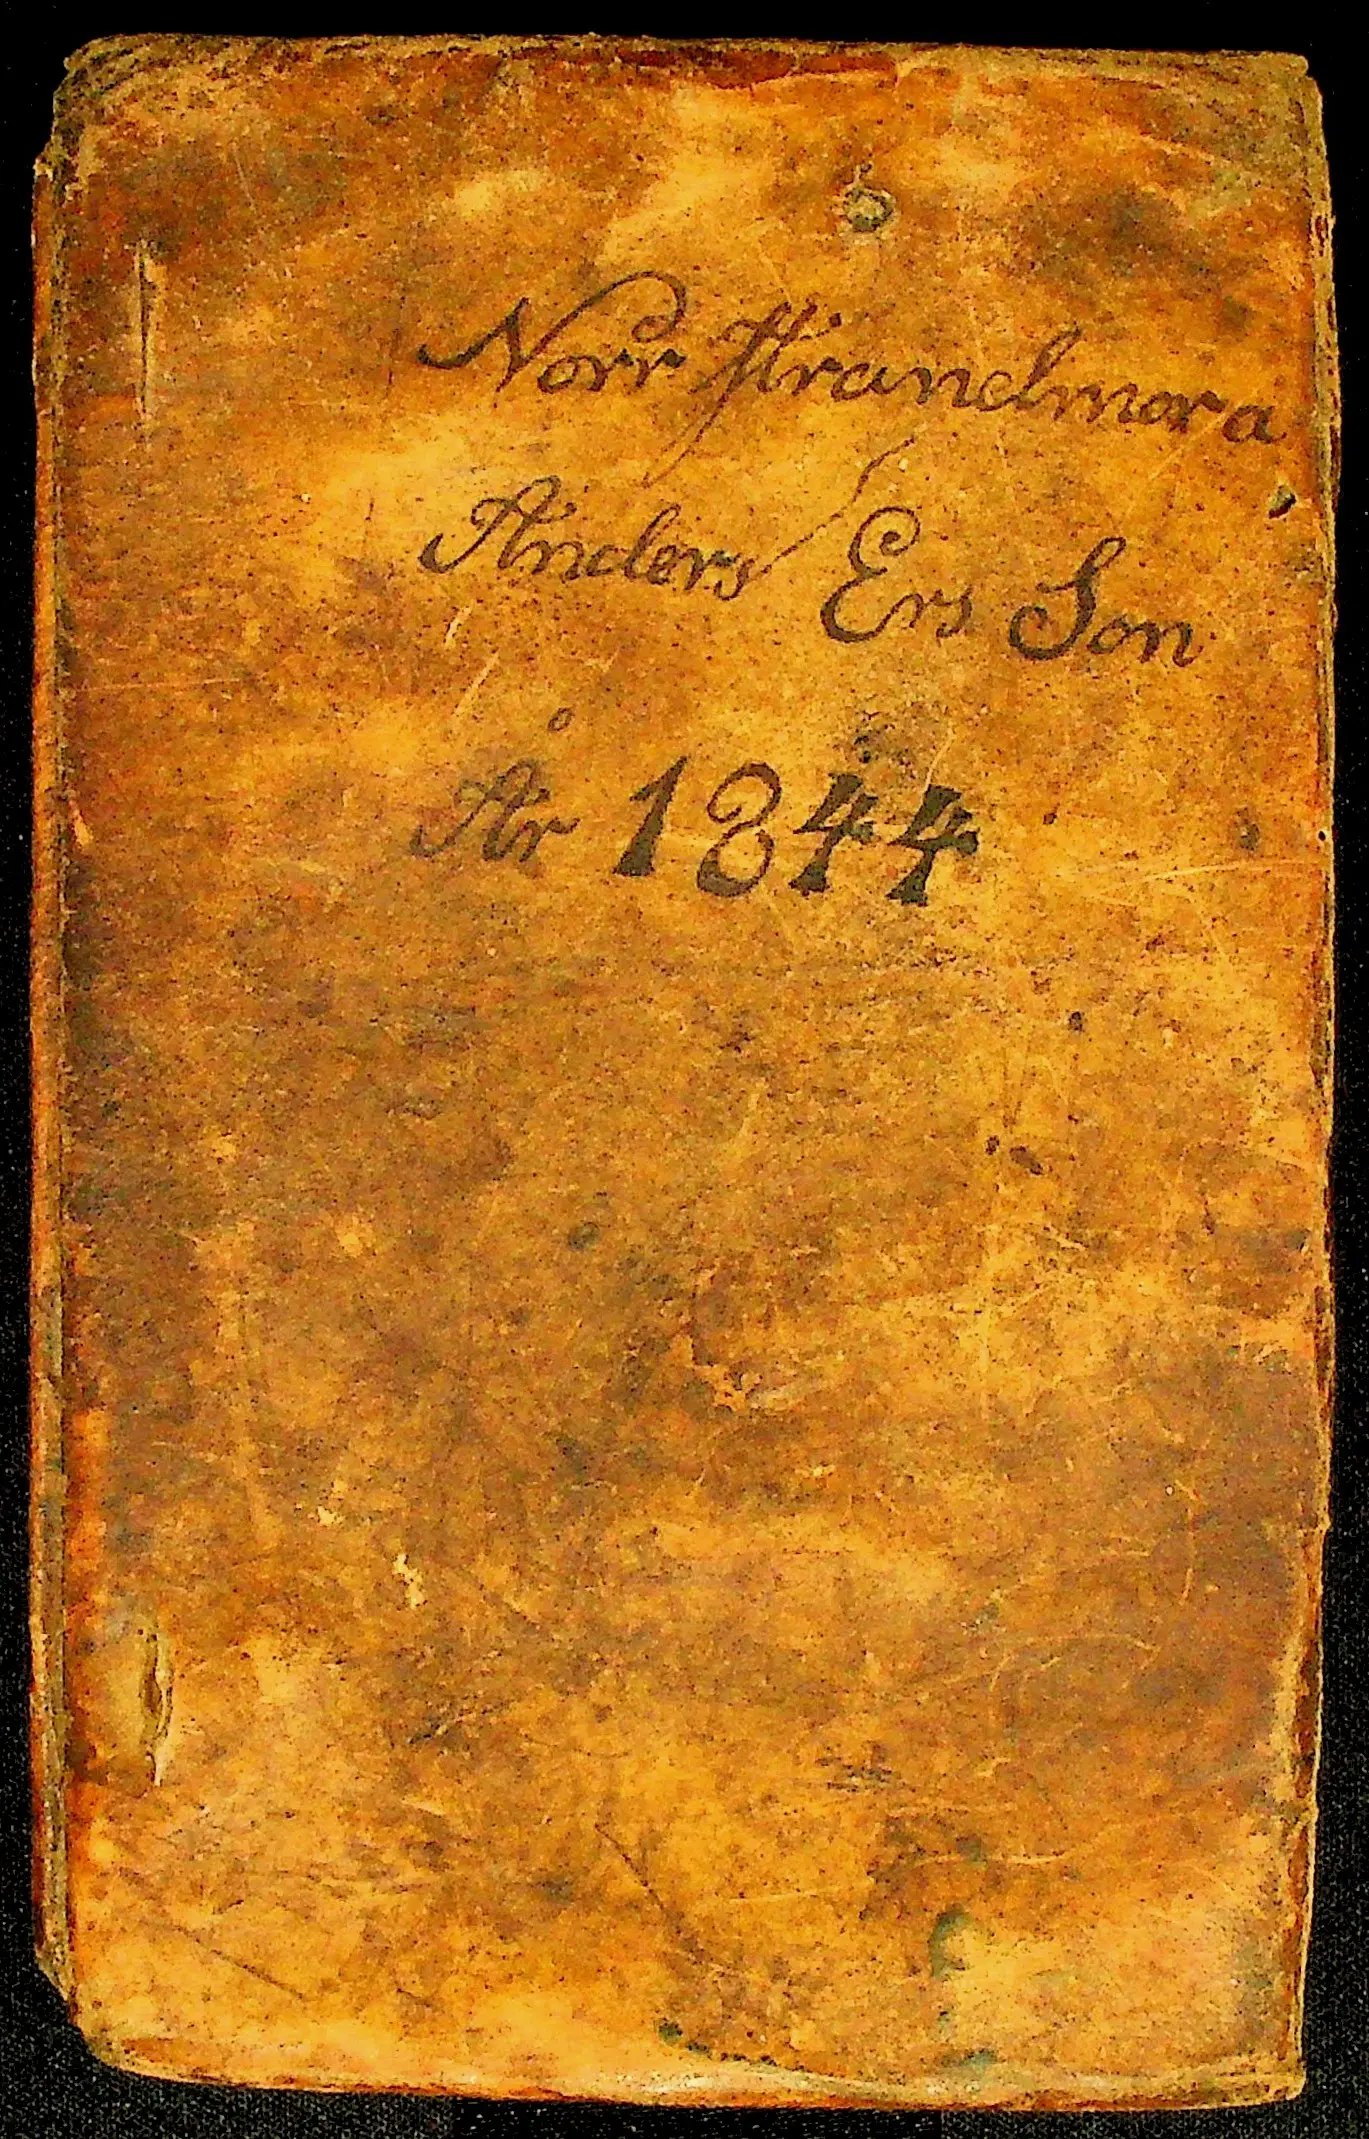 Norr
Anders Ers Son
År 1844